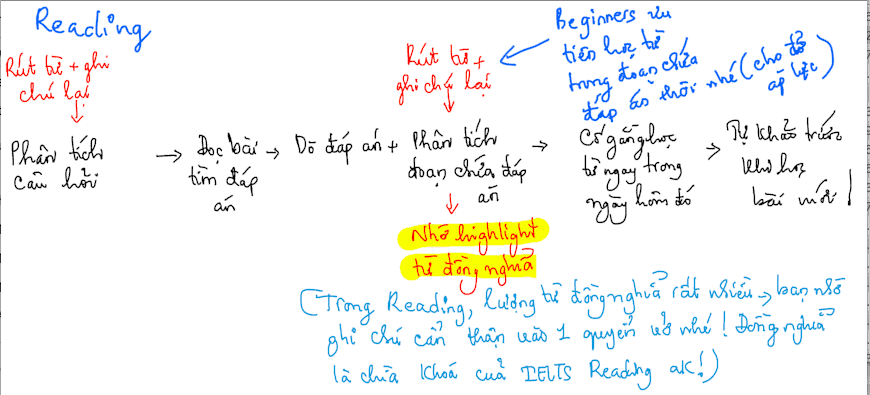 Reading
Rút từ + ghi
chú lại
Phân tích
câu hỏi
→ Đọc bài
tìm đáp
án
→ Dò đáp án +
Rút từ +
ghi chú lại
Phân tích
đoạn chứa đáp
án
Nhớ highlight
từ đồng nghĩa
Beginners ưu
tiên học từ
trong đoạn chứa
đáp án thôi nhé (cho đỡ
áp lực)
→ Cố gắng học
từ ngay trong
ngày hôm đó
→ Tự khảo trước
khi học
bài mới!
(Trong Reading, lượng từ đồng nghĩa rất nhiều → bạn nhớ
ghi chú cẩn thận vào 1 quyển vở nhé! Đồng nghĩa
là chìa khoá của IELTS Reading ak!)